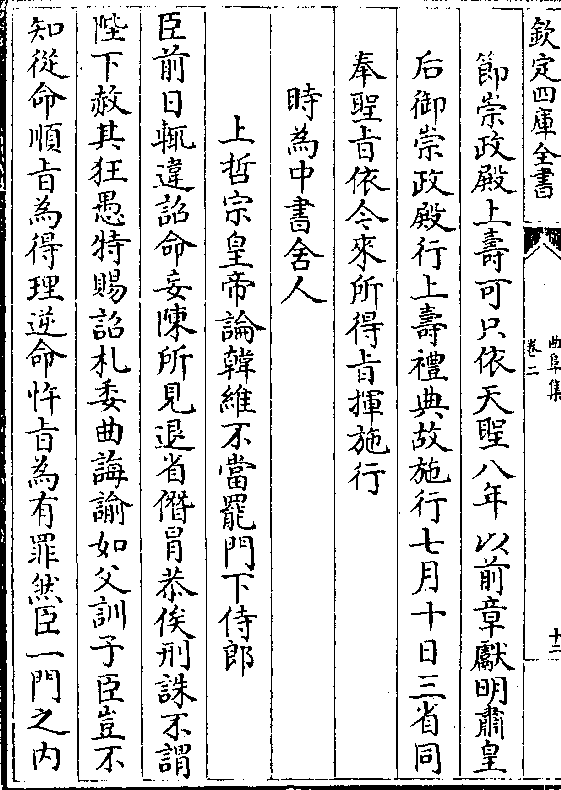 欽定四庫全書
曲阜集
卷二
十二
節崇政殿上壽可只依天聖八年以前章獻明肅皇
后御崇政殿行上壽禮典故施行七月十日三省同
奉聖旨依今來所得旨揮施行
時為中書舍人
上哲宗皇帝論韓維不當罷門下侍郎
臣前日輒違詔命妄陳所見退省僭冒恭俟刑誅不謂
陛下赦其狂愚特賜詔札委曲誨諭如父訓子臣豈不
知從命順旨為得理逆命忤旨為有罪然臣一門之内